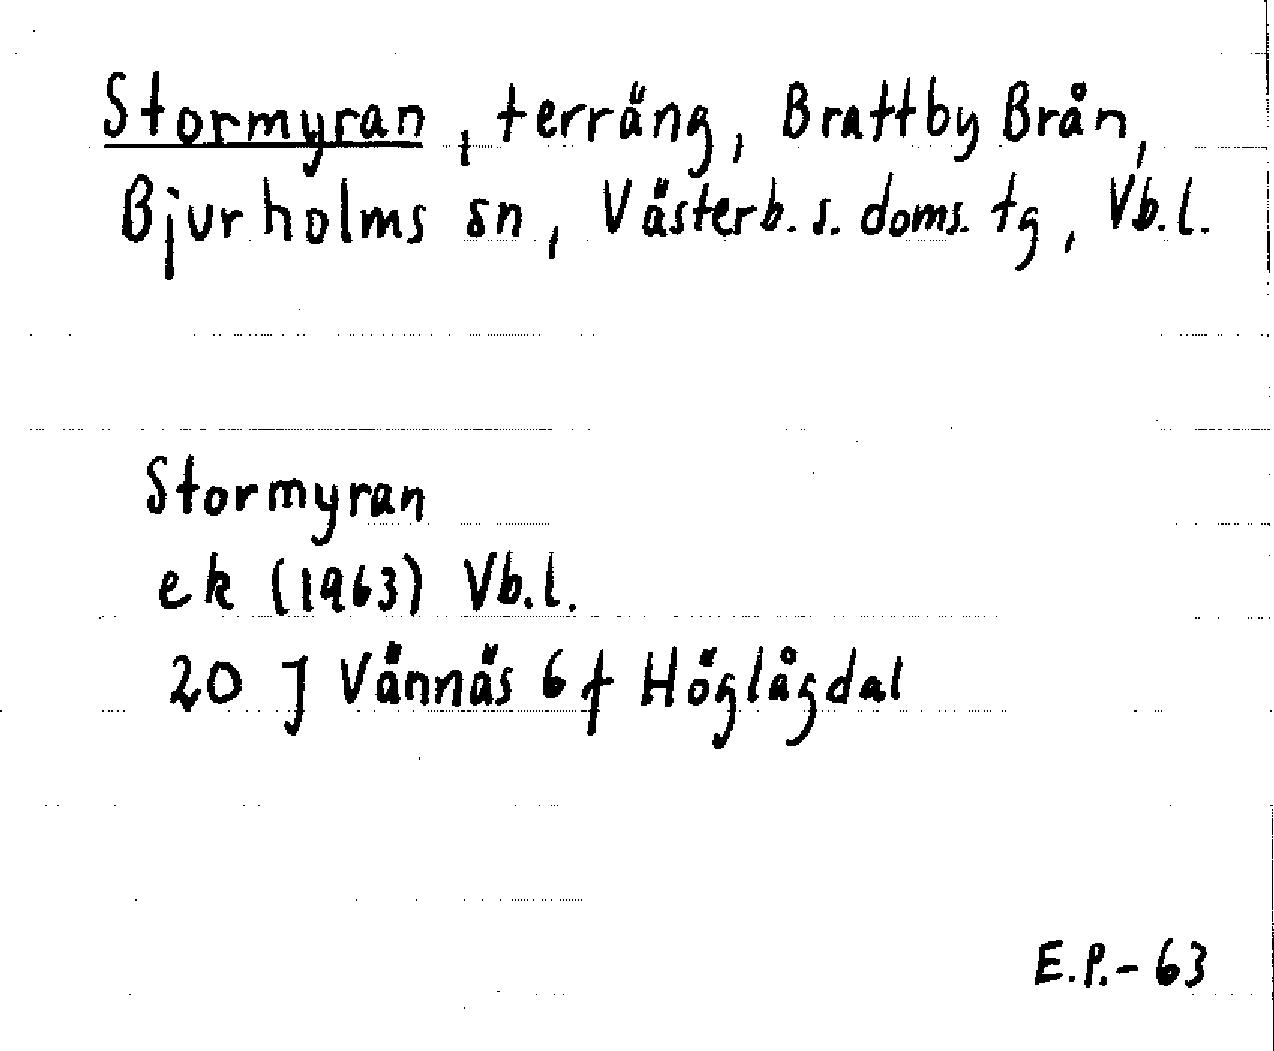 Stormyran, terräng, Brattby Brån,
Bjurholms sn, Västerb. s. doms. tg, Vb.l.
Stormyran
ek (1963) Vb.l.
20 J Vännäs 6 f Höglågdal
E.P.-63